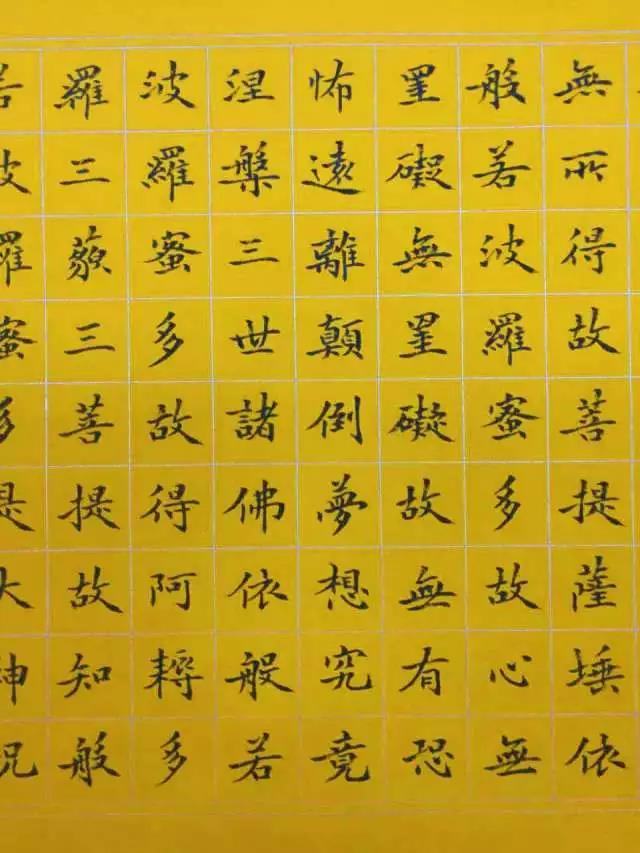 無所得故菩提薩埵依
般若波羅蜜多故心無
罣礙無罣礙故無有恐
怖遠離顛倒夢想究竟
涅槃三世諸佛依般若
波羅蜜多故得阿耨多
羅三藐三菩提故知般
若波羅蜜多是大神呪